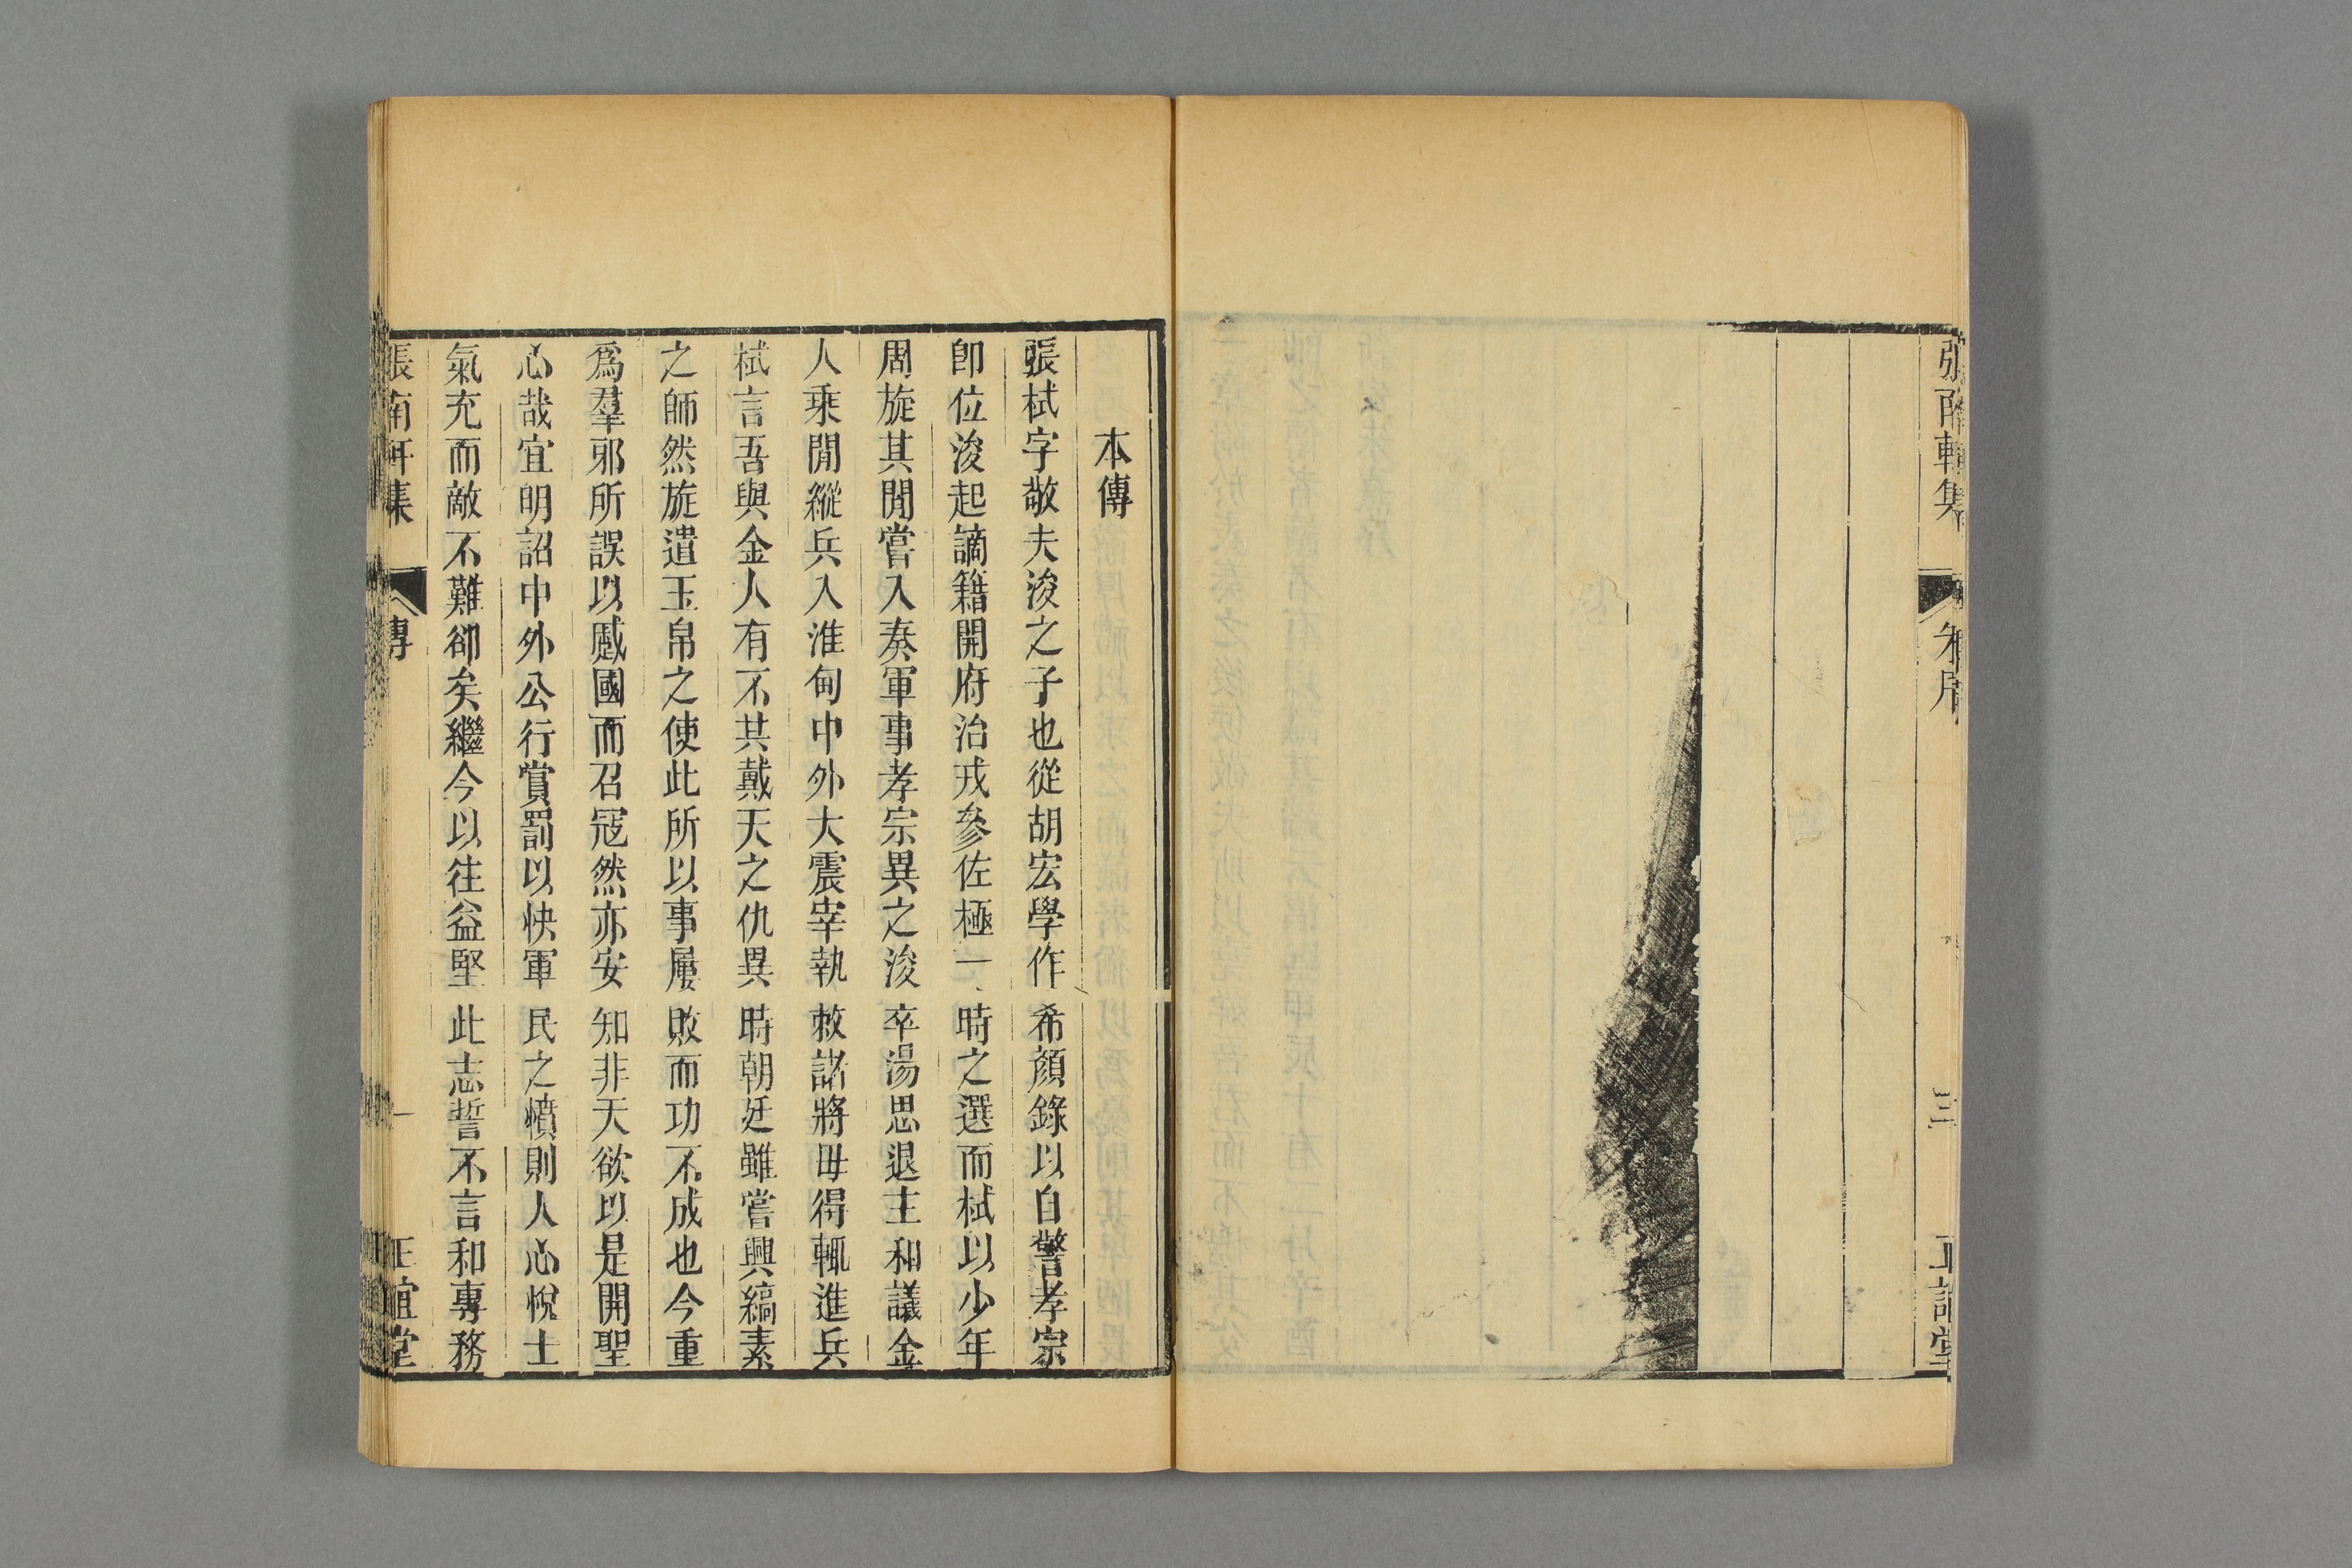 張南軒集 朱序 三 正誼堂
本傳
張栻字敬夫浚之子也從胡宏學作希顏錄以自警孝宗
卽位浚起謫籍開府治戎參佐極一時之選而栻以少年
周旋其閒嘗入奏軍事孝宗異之浚卒湯思退主和議金
人乘閒縱兵入淮甸中外大震宰執敕諸將毋得輒進兵
栻言吾與金人有不共戴天之仇異時朝廷雖嘗興縞素
之師然旋遣玉帛之使此所以事屢敗而功不成也今重
爲羣邪所誤以蹙國而召寇然亦安知非天欲以是開聖
心哉宜明詔中外公行賞罰以快軍民之憤則人心悅士
氣充而敵不難卻矣繼今以往益堅此志誓不言和專務
張南軒集 傳 一 正誼堂